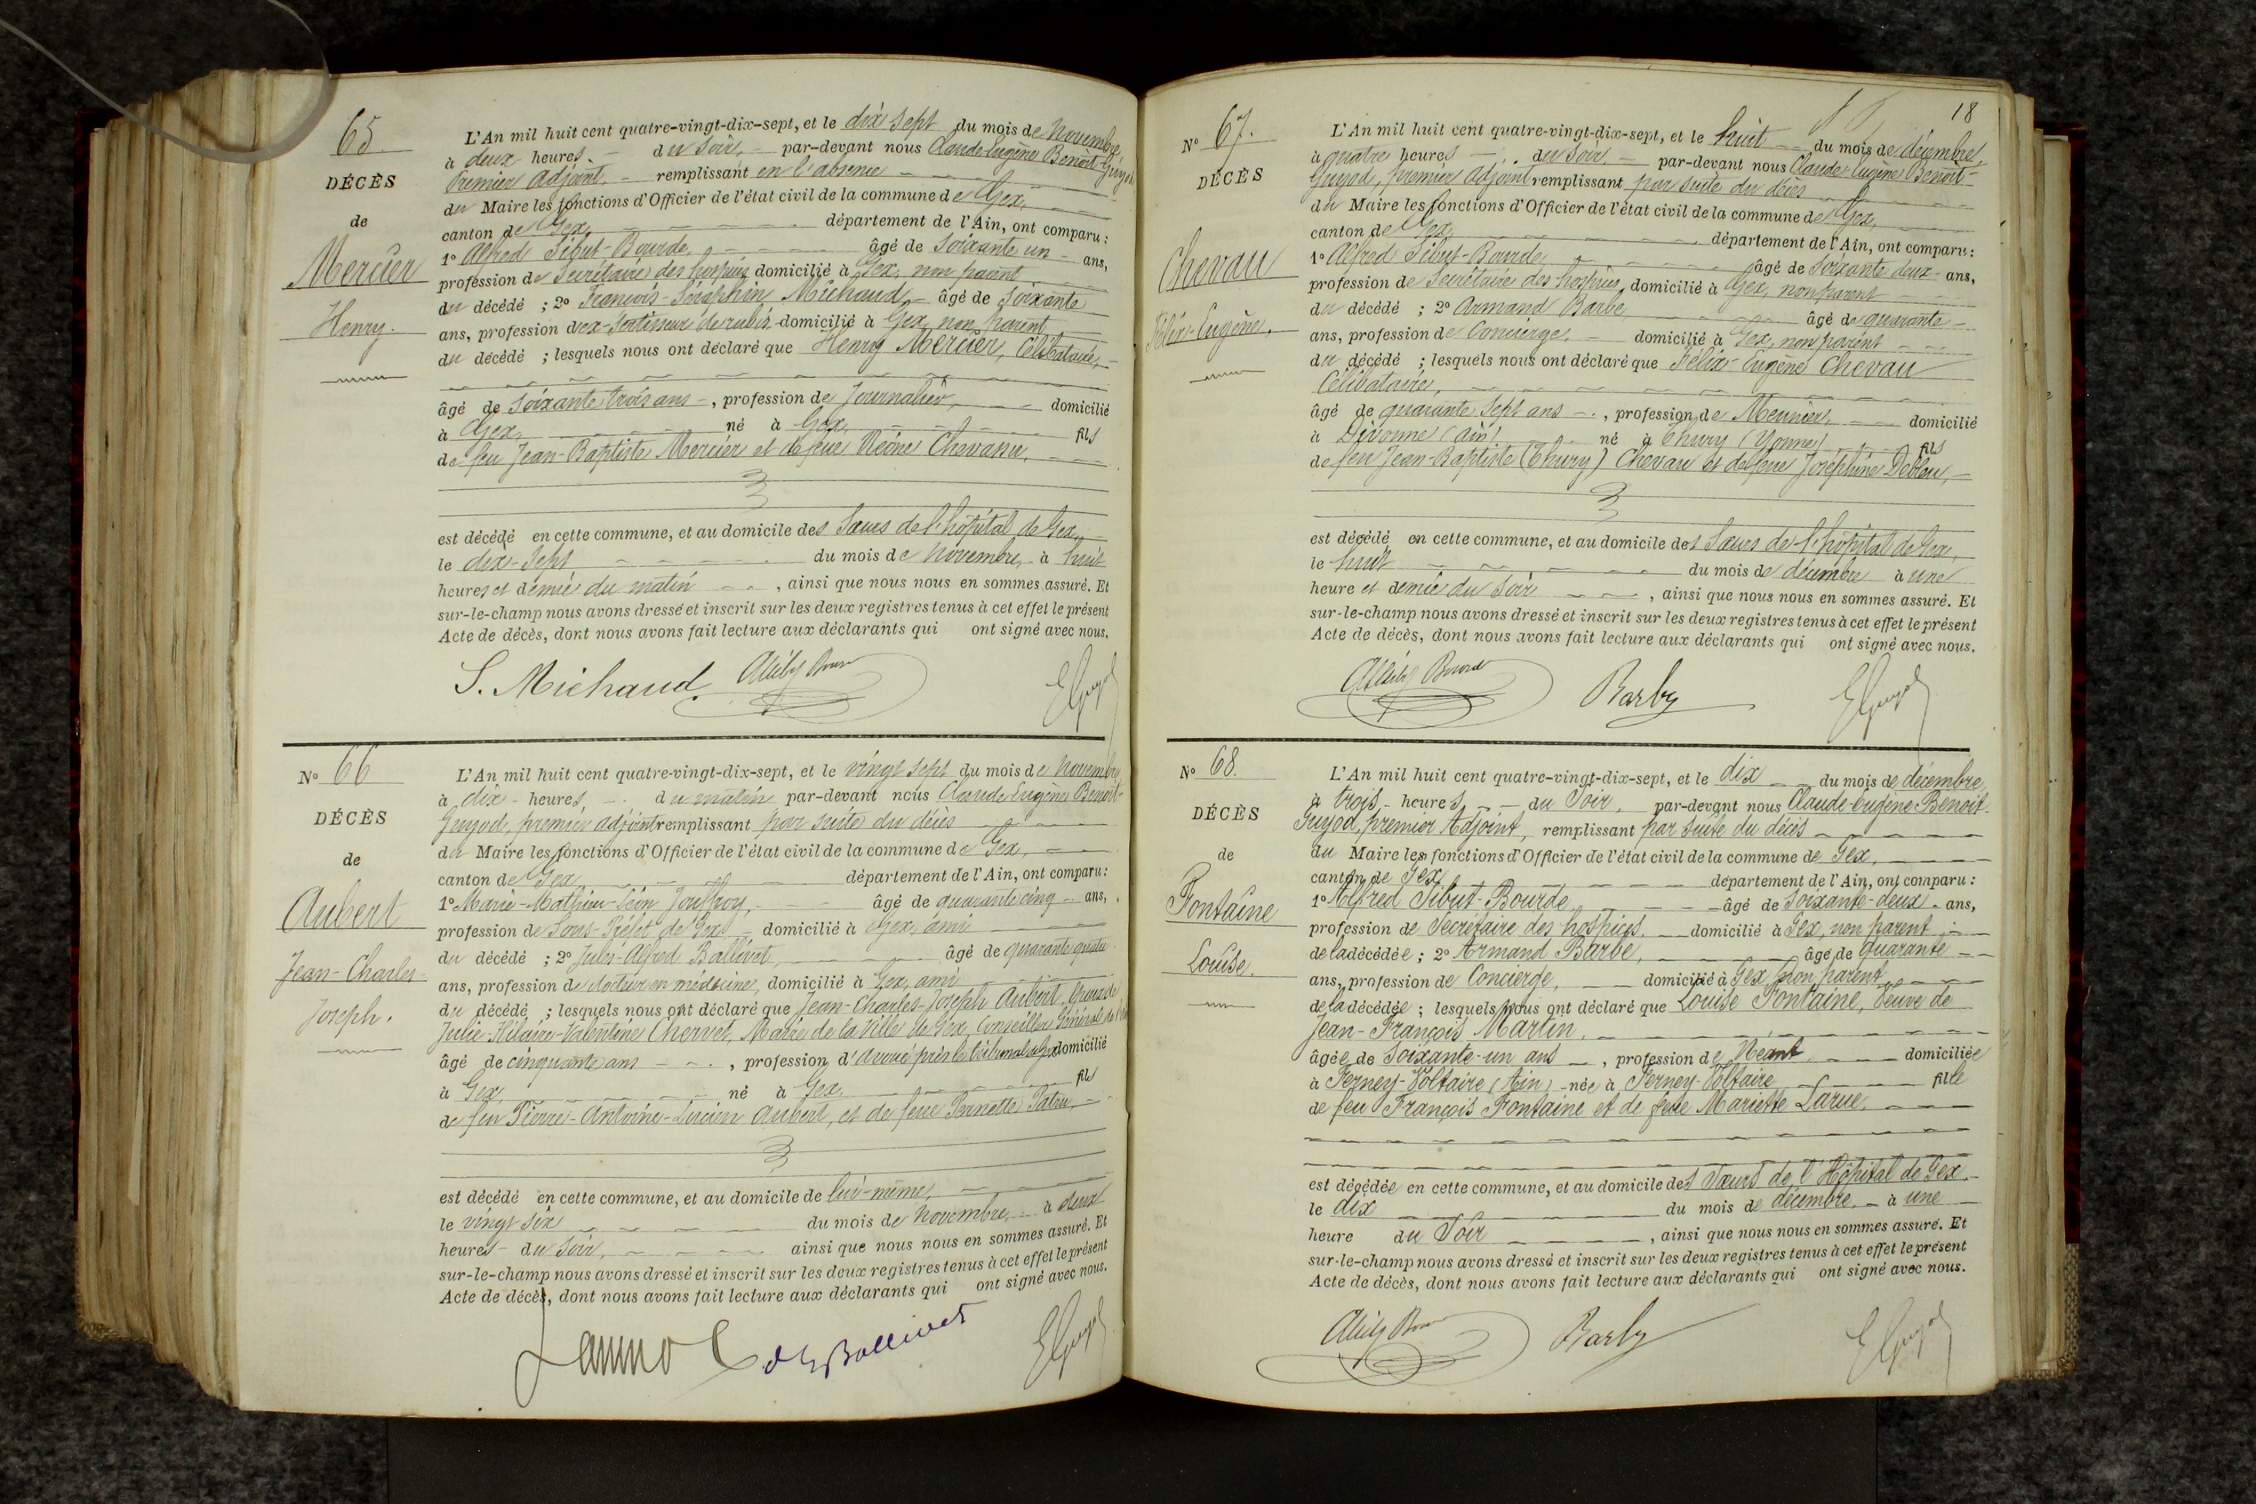 65
DÉCÈS
de
Mercier
Henry.
L'An mil huit cent quatre-vingt-dix-sept, et le dix sept du mois de Novembre,
à deux heures. - du Soir, - par-devant nous Claude Eugène Benoît-Guyod
Premier Adjoint, - remplissant en l'absence
du Maire les fonctions d'Officier de l'état civil de la commune de Gex,
canton de Gex, département de l'Ain, ont comparu :
1° Alfred Sibut-Bourde, âgé de Soixante un - ans,
profession de Secrétaire des hospices domicilié à Gex, non parent
du décédé ; 2° François-Séraphin Michaud - âgé de Soixante
ans, profession d'ex-Sertisseur de rubis domicilié à Gex, non parent
du décédé ; lesquels nous ont déclaré que Henry Mercier, Célibataire,
âgé de Soixante trois ans -, profession de Journalier, domicilié
à Gex, né à Gex, fils
de feu Jean-Baptiste Mercier et de feue Reine Chevanu,
est décédé en cette commune, et au domicile des Sœurs de l'hôpital de Gex,
le dix-Sept du mois de Novembre, - à huit
heures et demie du matin, ainsi que nous nous en sommes assuré. Et
sur-le-champ nous avons dressé et inscrit sur les deux registres tenus à cet effet le présent
Acte de décès, dont nous avons fait lecture aux déclarants qui ont signé avec nous.
S. Michaud. EGuyod
N° 66
DÉCÈS
de
Aubert
Jean-Charles-
Joseph.
L'An mil huit cent quatre-vingt-dix-sept, et le vingt sept du mois de Novembre
à dix - heures, - du matin par-devant nous Claude Eugène Benoît-
Guyod, premier adjoint remplissant par suite du décès
du Maire les fonctions d'Officier de l'état civil de la commune de Gex,
canton de Gex département de l'Ain, ont comparu :
1° Marie-Mathieu-Léon Jouffroy, âgé de quarante cinq - ans,
profession de Sous-Préfet de Gex - domicilié à Gex, ami
du décédé ; 2° Jules-Alfred Ballivet, âgé de quarante quatre
ans, profession de docteur en médecine, domicilié à Gex, ami
du décédé ; lesquels nous ont déclaré que Jean-Charles-Joseph Aubert, époux de
Julie-Hilaire-Valentine Chervet, Maire de la Ville de Gex, Conseiller Général de l'Ain
âgé de cinquante ans, profession d'avoué près le tribunal de Gex domicilié
à Gex, né à Gex, fils
de feu Pierre-Antoine-Lucien Aubert, et de feue Pernette Patru,
est décédé en cette commune, et au domicile de lui-même,
le vingt six du mois de Novembre, - à deux
heures - du Soir, ainsi que nous nous en sommes assuré. Et
sur-le-champ nous avons dressé et inscrit sur les deux registres tenus à cet effet le présent
Acte de décès, dont nous avons fait lecture aux déclarants qui ont signé avec nous.
Ballivet EGuyod
18
N° 67.
DÉCÈS
Chevau
Félix-Eugène.
L'An mil huit cent quatre-vingt-dix-sept, et le huit - du mois de décembre,
à quatre heures - du Soir - par-devant nous Claude Eugène Benoît-
Guyod, premier adjoint remplissant par suite du décès
du Maire les fonctions d'Officier de l'état civil de la commune de Gex,
canton de Gex, département de l'Ain, ont comparu :
1° Alfred Sibut-Bourde, âgé de Soixante deux - ans,
profession de Secrétaire des hospices, domicilié à Gex, non parent
du décédé ; 2° Armand Barbe, âgé de quarante -
ans, profession de Concierge, - domicilié à Gex, non parent
du décédé ; lesquels nous ont déclaré que Félix-Eugène Chevau
Célibataire,
âgé de quarante Sept ans -, profession de Meunier, domicilié
à Divonne (Ain) né à Thury (Yonne) fils
de feu Jean-Baptiste (Thury) Chevau et de feue Joséphine Debleu,
est décédé en cette commune, et au domicile des Sœurs de l'hôpital de Gex,
le huit du mois de décembre à une
heure et demie du Soir, ainsi que nous nous en sommes assuré. Et
sur-le-champ nous avons dressé et inscrit sur les deux registres tenus à cet effet le présent
Acte de décès, dont nous avons fait lecture aux déclarants qui ont signé avec nous.
Barby EGuyod
N° 68.
DÉCÈS
de
Fontaine
Louise.
L'An mil huit cent quatre-vingt-dix-sept, et le dix du mois de décembre
à trois - heures - du Soir, par-devant nous Claude-Eugène-Benoît-
Guyod, premier Adjoint, remplissant par suite du décès
du Maire les fonctions d'Officier de l'état civil de la commune de Gex,
canton de Gex département de l'Ain, ont comparu :
1° Alfred Sibut-Bourde, âgé de Soixante-deux - ans,
profession de Secrétaire des hospices, domicilié à Gex, non parent
de la décédée ; 2° Armand Barbe, âgé de quarante
ans, profession de Concierge, domicilié à Gex, non parent
de la décédée ; lesquels nous ont déclaré que Louise Fontaine, Veuve de
Jean-François Martin,
âgée de Soixante-un ans -, profession de Néant domiciliée
à Ferney-Voltaire (Ain) - née à Ferney-Voltaire fille
de feu François Fontaine et de feue Mariette Larue,
est décédée en cette commune, et au domicile des Sœurs de l'Hôpital de Gex,
le dix du mois de décembre - à une
heure du Soir, ainsi que nous nous en sommes assuré. Et
sur-le-champ nous avons dressé et inscrit sur les deux registres tenus à cet effet le présent
Acte de décès, dont nous avons fait lecture aux déclarants qui ont signé avec nous.
Barby EGuyod